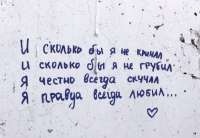 И сколько бы я не кричал,
И сколько бы я не грубил
Я честно всегда скучал
Я правда всегда любил...